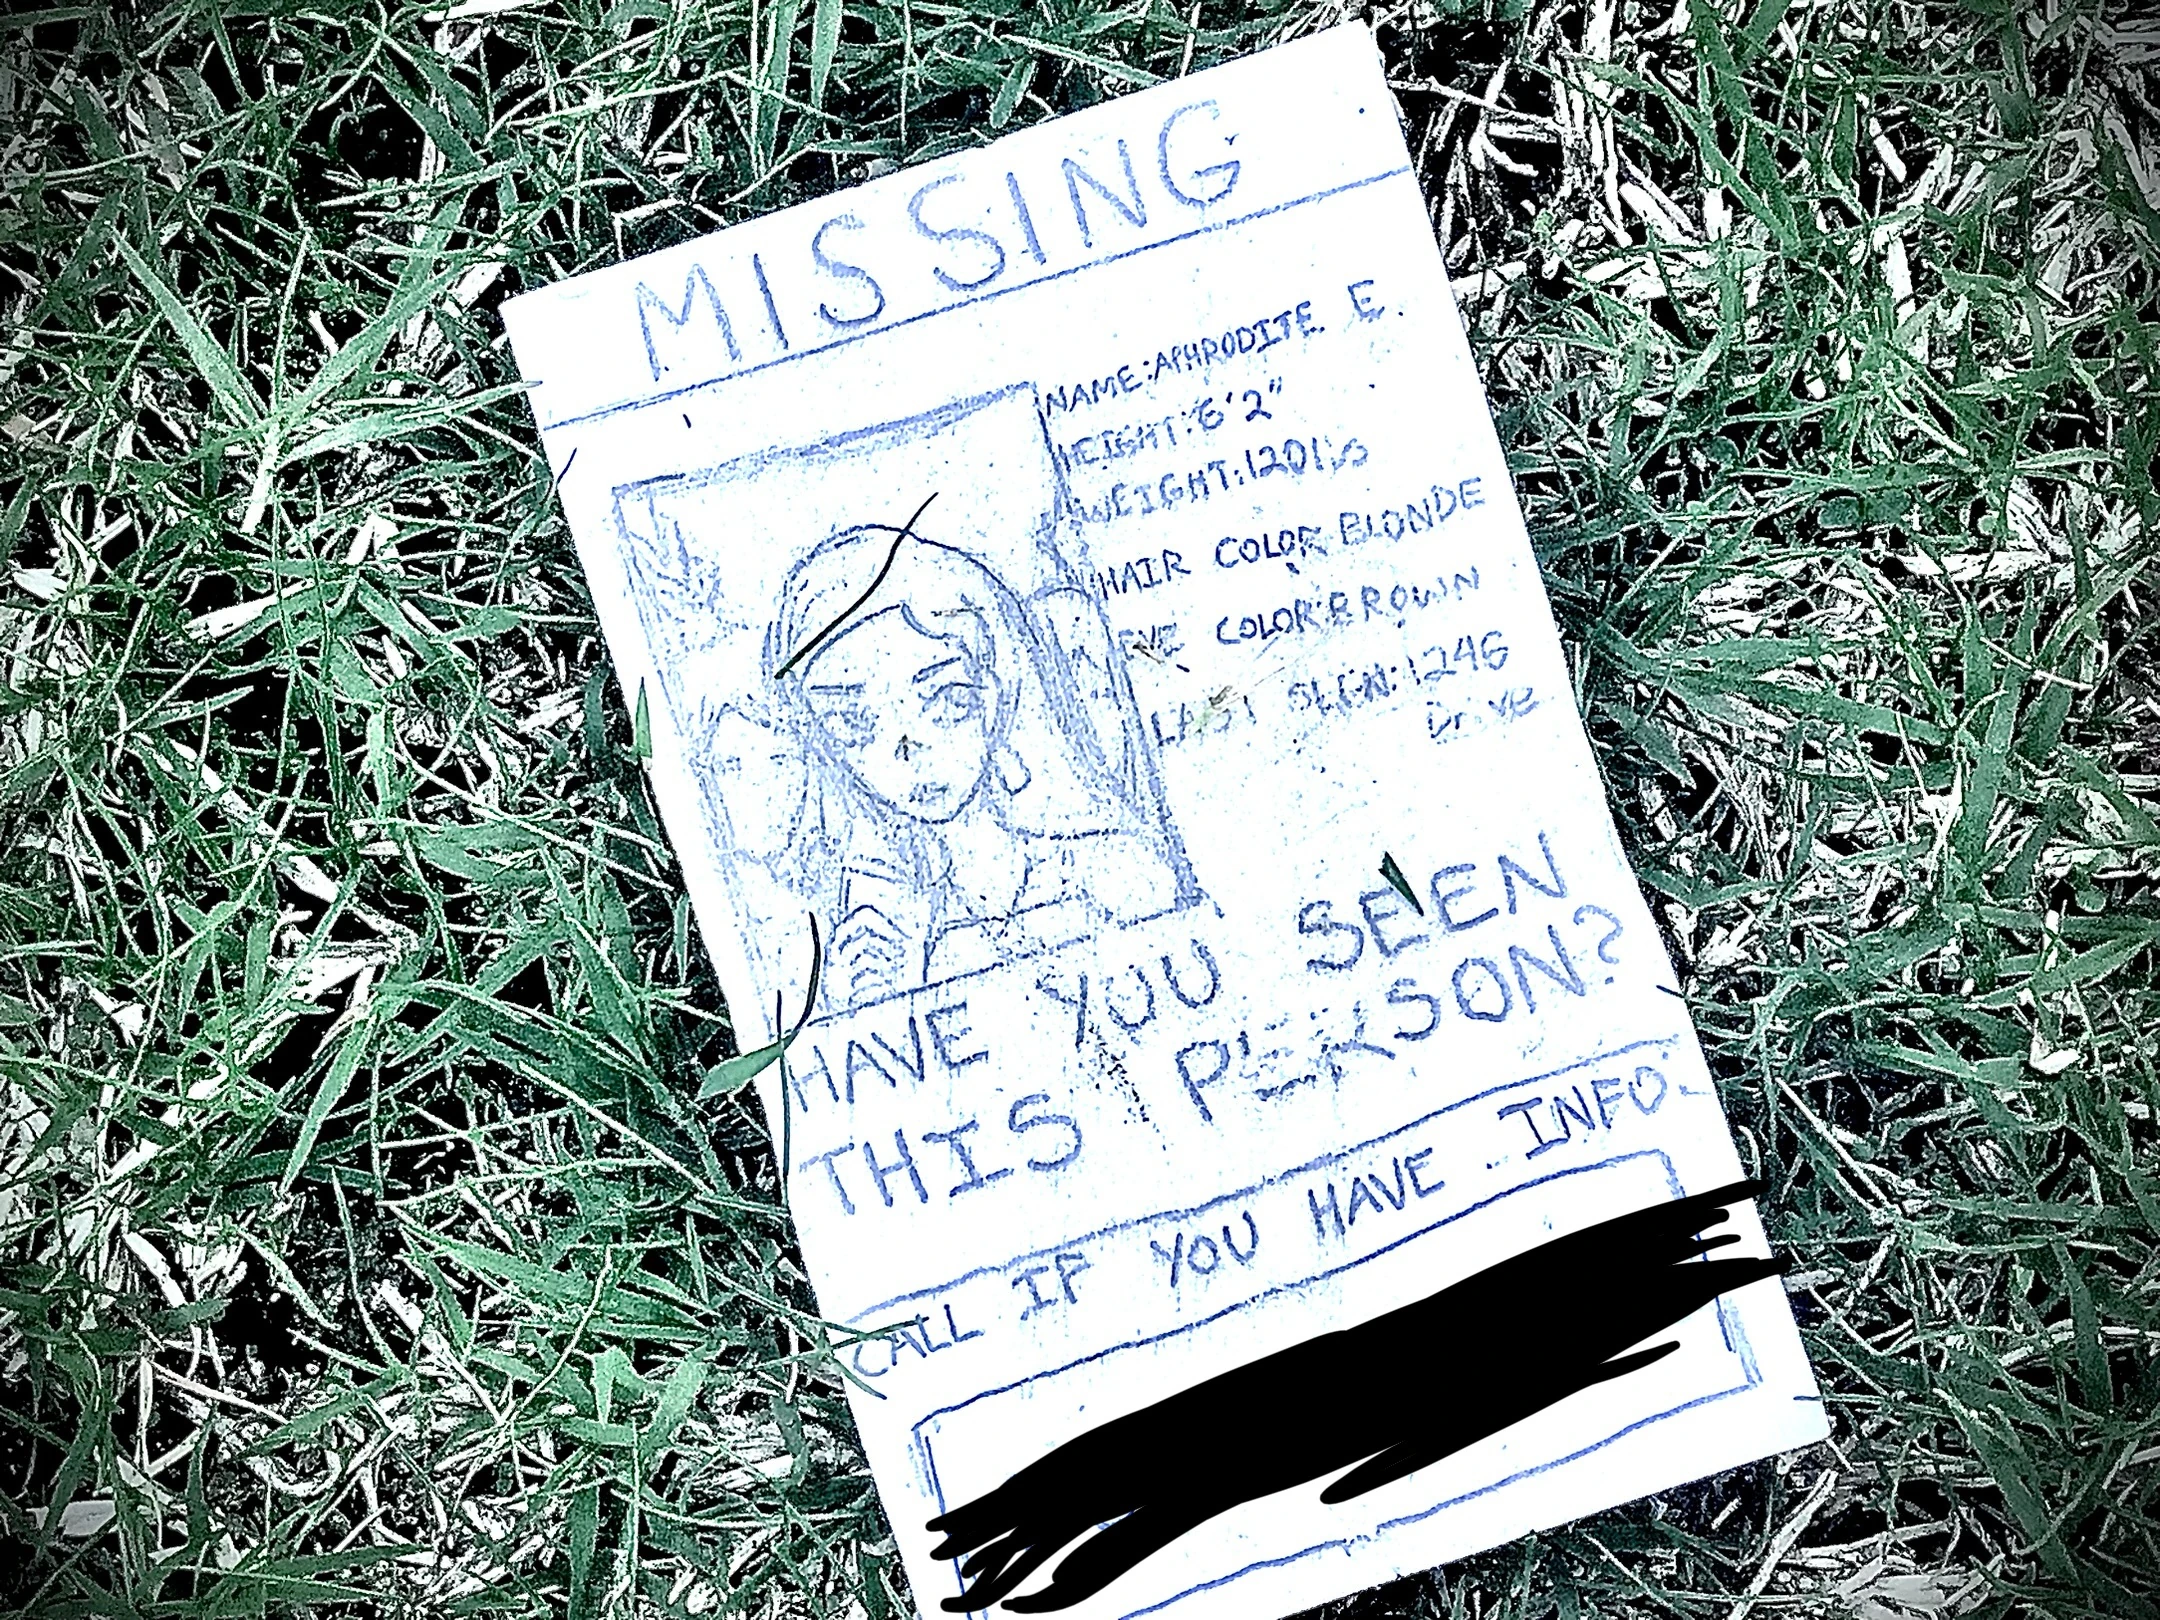 MISSING
NAME: APHRODITE E.
HEIGHT: 6'2"
WEIGHT: 120lbs
HAIR COLOR: BLONDE
EYE COLOR: BROWN
LAST SEEN: 1246
Drive
HAVE YOU SEEN
THIS PERSON?
CALL IF YOU HAVE INFO.